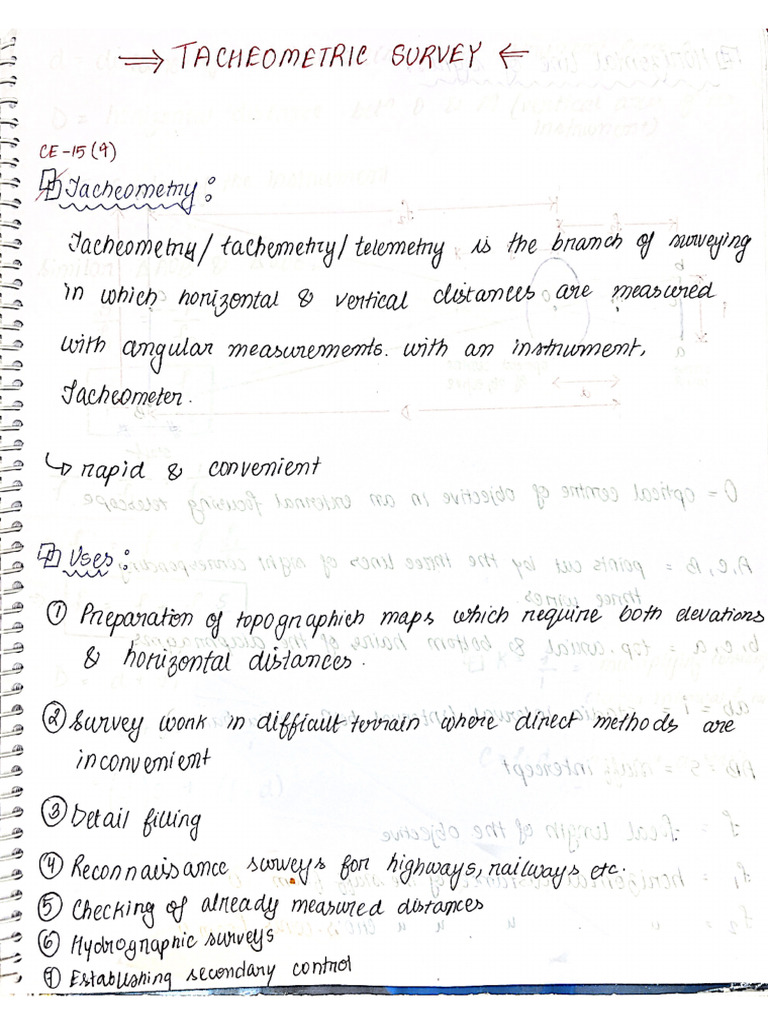 ⇒ TACHEOMETRIC SURVEY ⇐
CE-15(9)
Tacheometry:
Tacheometry/ tachemetry/ telemetry is the branch of surveying
in which horizontal & vertical distances are measured
with angular measurements. with an instrument,
Tacheometer.
↳ rapid & convenient
Uses:
① Preparation of topographich maps which require both elevations
& horizontal distances.
② Survey work in difficult terrain where direct methods are
inconvenient
③ Detail filling
④ Reconnaissance surveys for highways, railways, etc.
⑤ Checking of already measured distances
⑥ Hydrographic surveys
⑦ Establishing secondary control